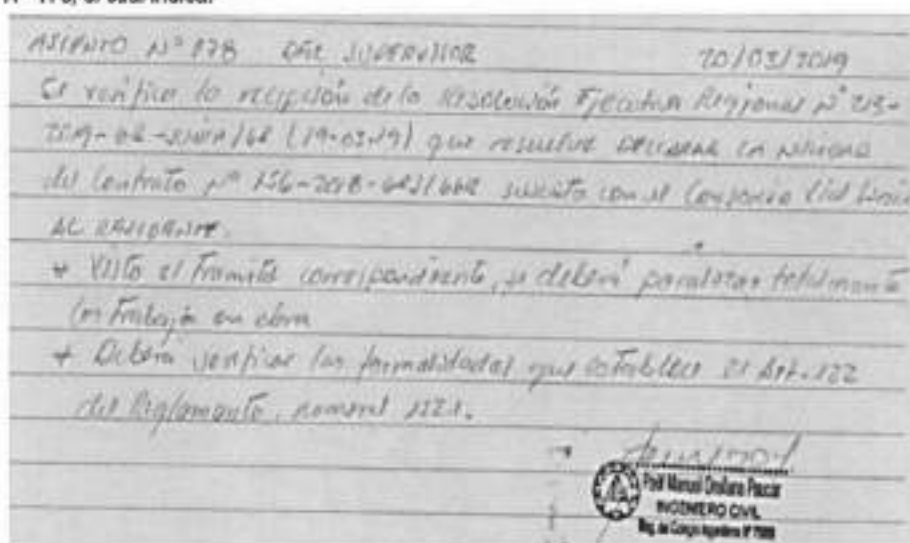 ASIENTO N° 178 DEL SUPERVISOR 20/03/2019
Se verifica la recepción de la Resolución Ejecutiva Regional N° 213-
2019-GR-JUNIN/GR (19-03-19) que resuelve DECLARAR LA NULIDAD
del Contrato N° 156-2018-GRJ/GGR suscrito con el Consorcio
AL RESIDENTE.
* Visto el Tramite correspondiente, se deberá paralizar totalmente
los trabajos en obra
* Deberá verificar las formalidades que establece el Art. 122
del Reglamento, numeral 122.1.
Manuel Orellana Paucar
INGENIERO CIVIL